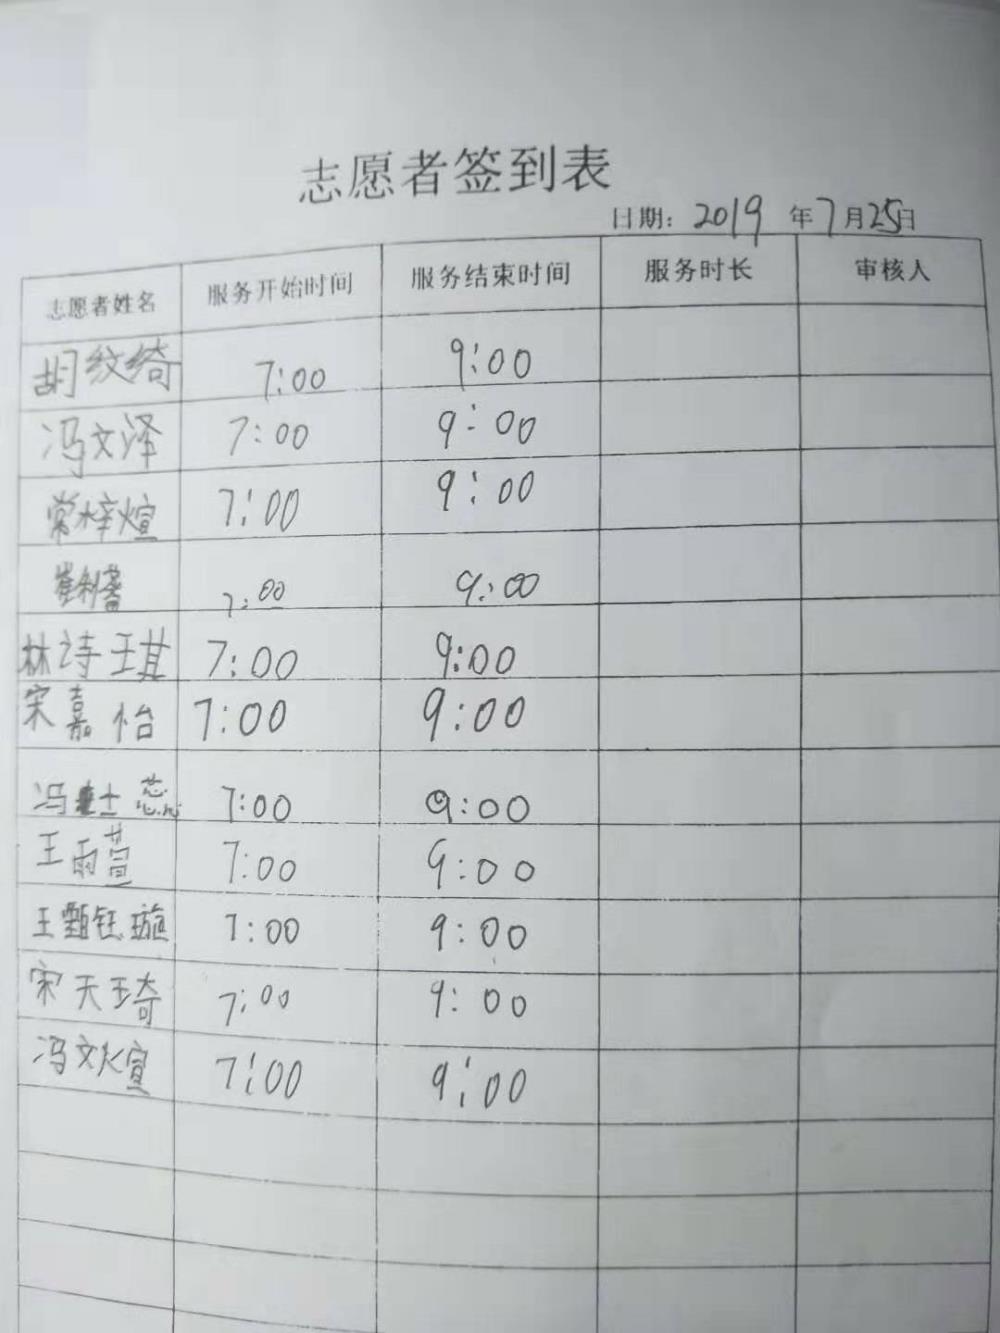 志愿者签到表
日期：2019年7月25日
志愿者姓名 服务开始时间 服务结束时间 服务时长 审核人
胡纹绮 7:00 9:00
冯文泽 7:00 9:00
常梓煊 7:00 9:00
7:00 9:00
林诗琪 7:00 9:00
宋嘉怡 7:00 9:00
冯 蕊 7:00 9:00
王雨萱 7:00 9:00
王甄钰璇 7:00 9:00
宋天琦 7:00 9:00
冯文煊 7:00 9:00